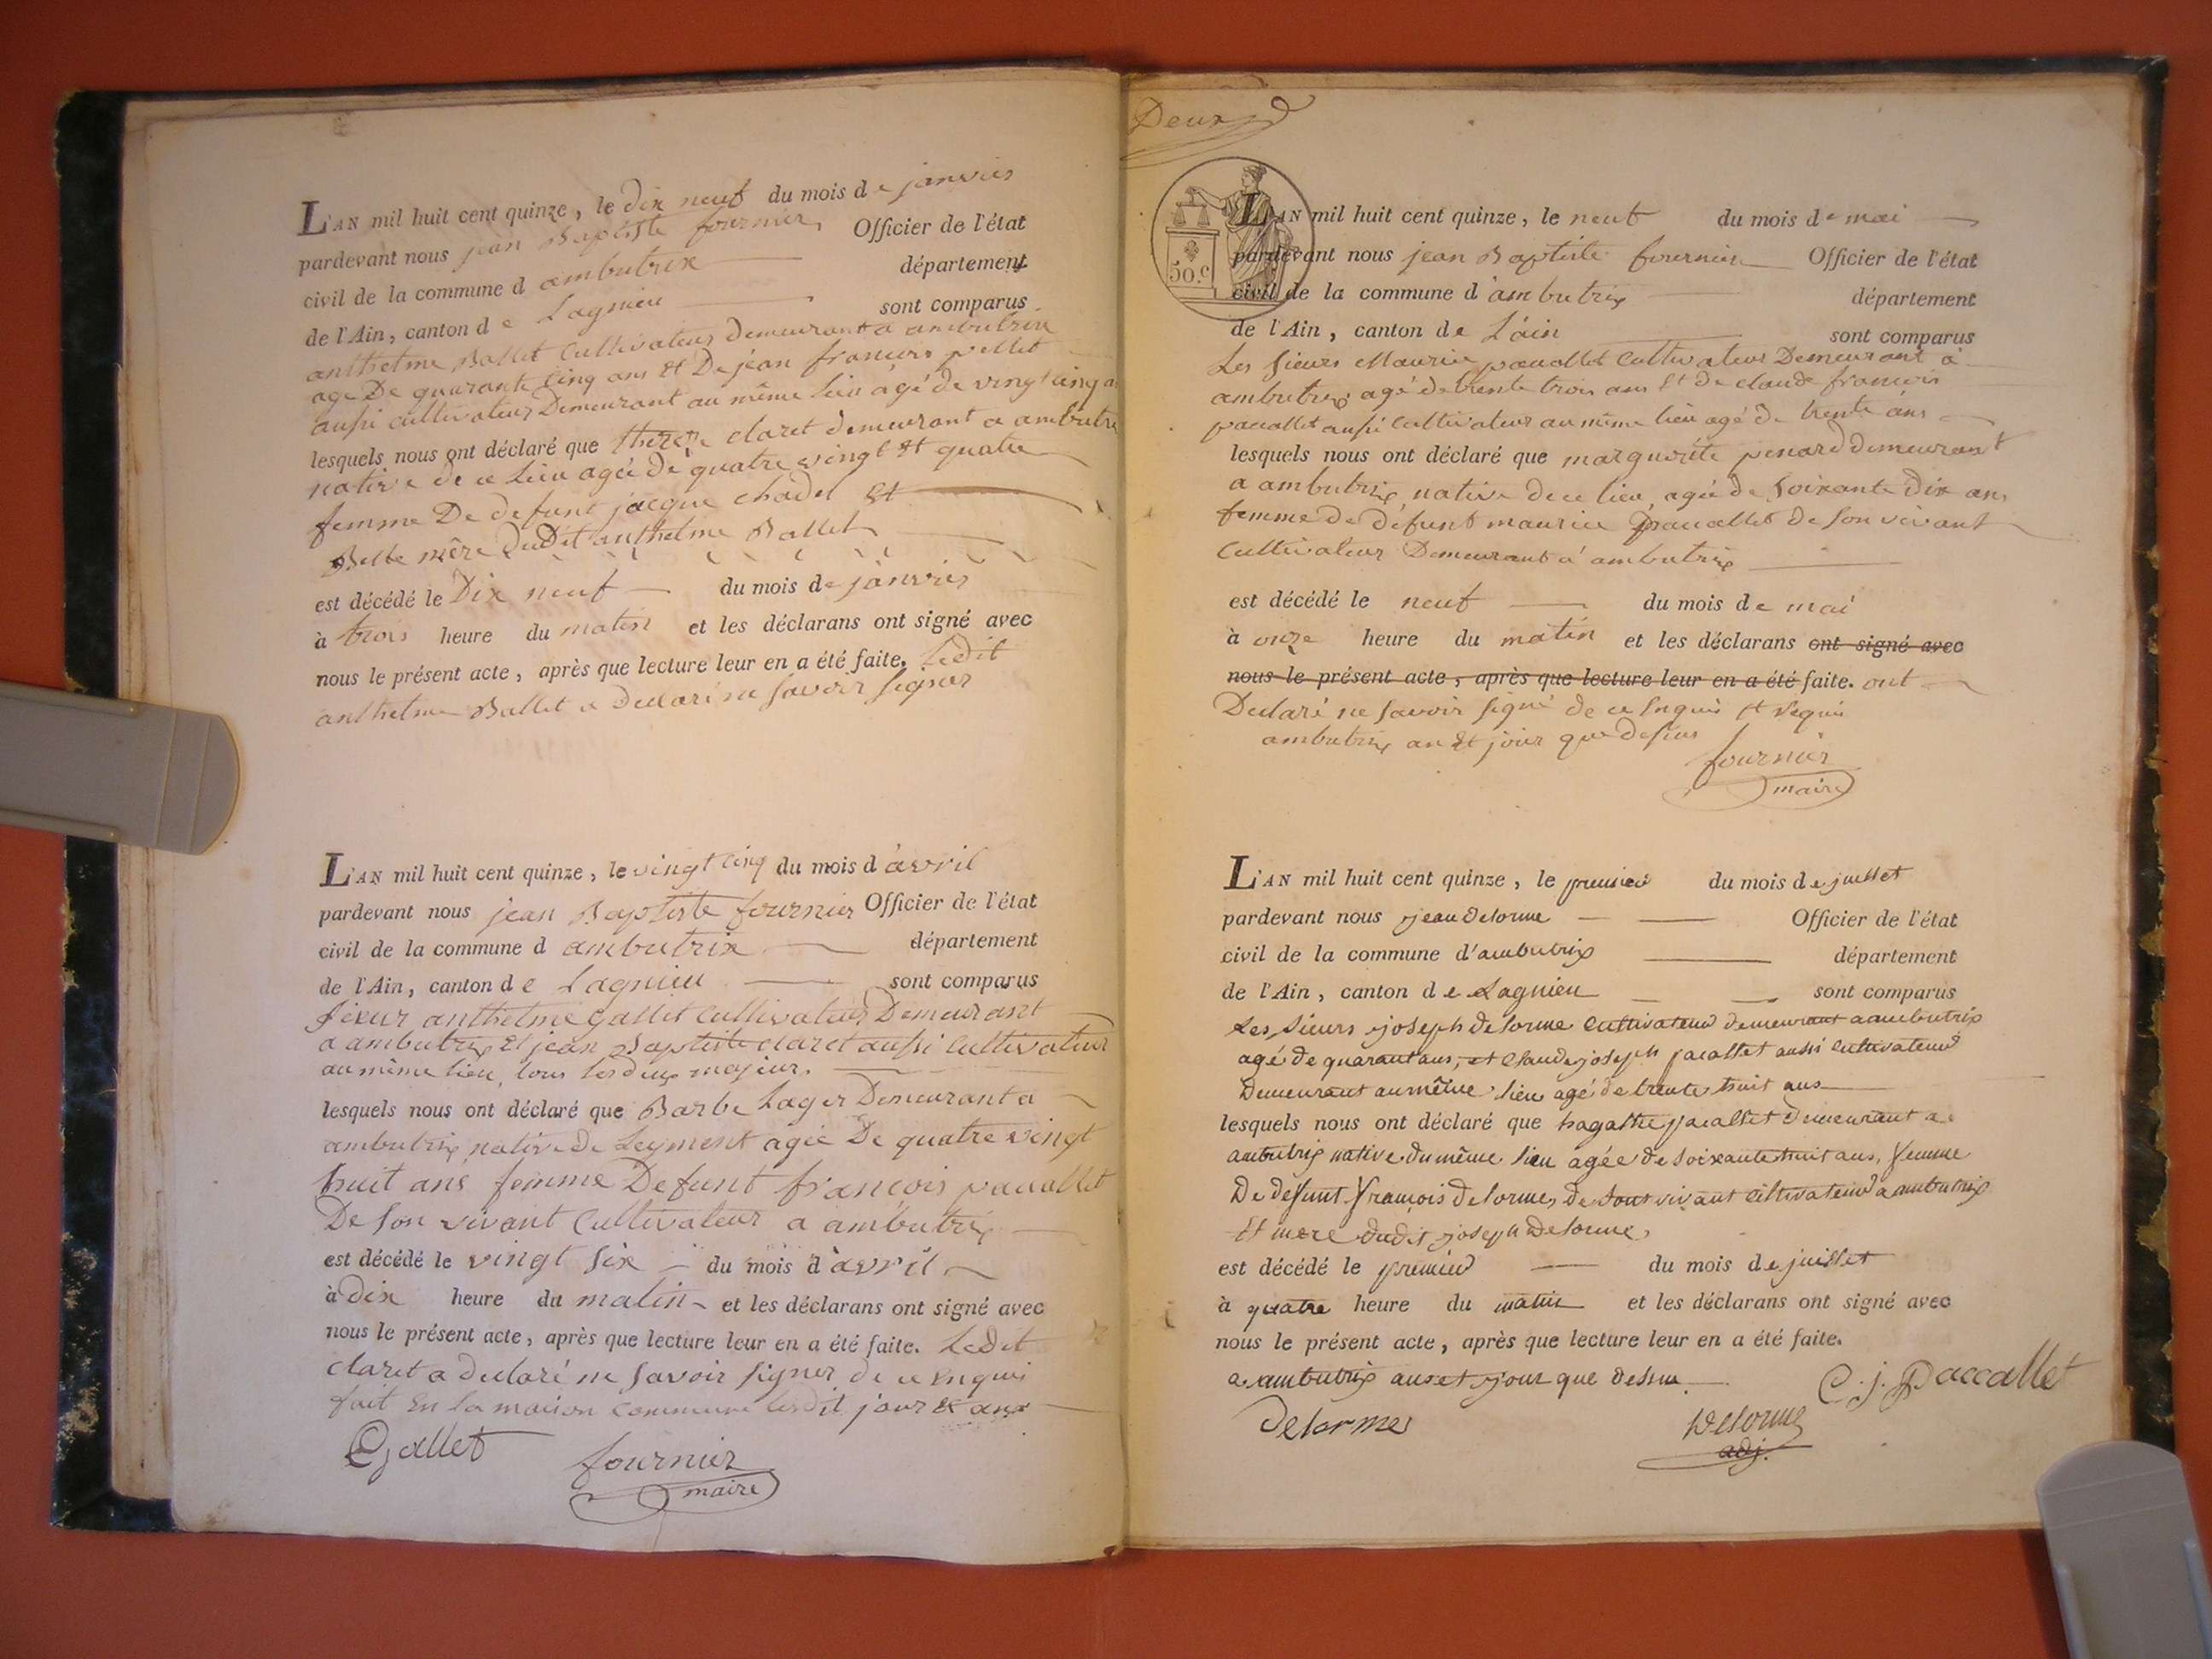 L'AN mil huit cent quinze, le dix neuf du mois de janvier
pardevant nous jean Baptiste fournier Officier de l'état
civil de la commune d ambutrix département
de l'Ain, canton de Lagnieu sont comparus
anthelme Ballet Cultivateur Demeurant a ambutrix
age De quarante Cinq ans et De jean francois pellet
aussi cultivateur Demeurant au même lieu agé de vingt cinq a
lesquels nous ont déclaré que therese claret demeurant a ambutri
native de ce lieu agée de quatre vingt et quatre
femme De defunt jacque chadel Et
Belle mère Dudit anthelme Ballet
est décédé le Dix neuf du mois de janvier
à trois heure du matin et les déclarans ont signé avec
nous le présent acte, après que lecture leur en a été faite. Ledit
anthelme Ballet a Declaré ne savoir signer
L'AN mil huit cent quinze, le vingt cinq du mois d'avril
pardevant nous jean Baptiste fournier Officier de l'état
civil de la commune d ambutrix département
de l'Ain, canton de Lagnieu sont comparus
sieur anthelme gallet Cultivateur Demeurant
a ambutrix et jean Baptiste claret aussi cultivateur
au même lieu, tous les deux majeur.
lesquels nous ont déclaré que Barbe Lager Demeurant a
ambutrix native de Leyment agée De quatre vingt
huit ans femme Defunt françois pacallet
De son vivant Cultivateur a ambutrix
est décédé le vingt six du mois d'avril
à dix heure du matin et les déclarans ont signé avec
nous le présent acte, après que lecture leur en a été faite. Ledit
claret a declaré ne savoir signer de ce enquis
fait En la maison commune lesdit jour et an
gallet fournier
maire
Deux
50.c
L'AN mil huit cent quinze, le neuf du mois de mai
pardevant nous jean Baptiste fournier Officier de l'état
civil de la commune d'ambutrix département
de l'Ain, canton de L'ain sont comparus
Les sieurs Maurice pacallet Cultivateur Demeurant à
ambutrix agé de trente trois ans Et de claude francois
pacallet aussi Cultivateur au même lieu agé de trente ans
lesquels nous ont déclaré que marguerite penard demeurant
a ambutrix native de ce lieu agée de soixante Dix ans
femme de défunt maurice pacallet de son vivant
Cultivateur Demeurant a ambutrix
est décédé le neuf du mois de mai
à onze heure du matin et les déclarans ont signé avec
nous le présent acte, après que lecture leur en a été faite. ont
Declaré ne savoir signé de ce Enquis et requis
ambutrix an Et jour que Dessus
fournier
maire
L'AN mil huit cent quinze, le premier du mois de juillet
pardevant nous jean delorme Officier de l'état
civil de la commune d'ambutrix département
de l'Ain, canton de Lagnieu sont comparus
Les sieurs joseph delorme Cultivateur demeurant a ambutrix
agé de quarant ans, et Claude joseph pacallet aussi Cultivateur
Demeurant au même lieu agé de trente huit ans
lesquels nous ont déclaré que hagathe pacallet Demeurant a
ambutrix native du même lieu agée de soixante huit ans, femme
De defunt françois delorme, de sont vivant Cultivateur a ambutrix
Et mere dudit joseph Delorme,
est décédé le premier du mois de juillet
à quatre heure du matin et les déclarans ont signé avec
nous le présent acte, après que lecture leur en a été faite.
a ambutrix ans et jour que dessus
C. j. Paccallet
Delorme Delorme
adj.